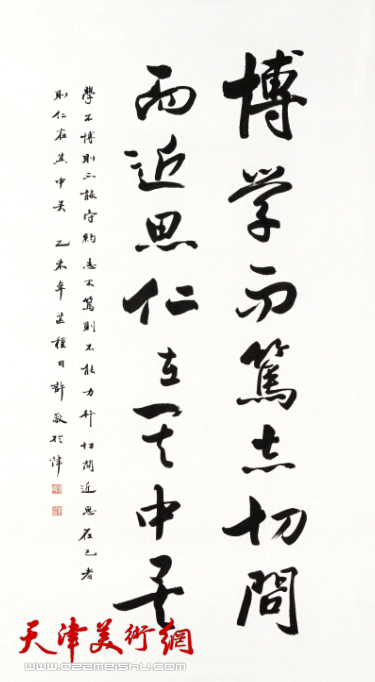 博学而篤志切問
而近思仁在其中矣
學不博則不能守約志不篤則不能力行切問近思在己者
則仁在其中矣 乙未年芒種日許敬於津
天津美術網
www.022meishu.com